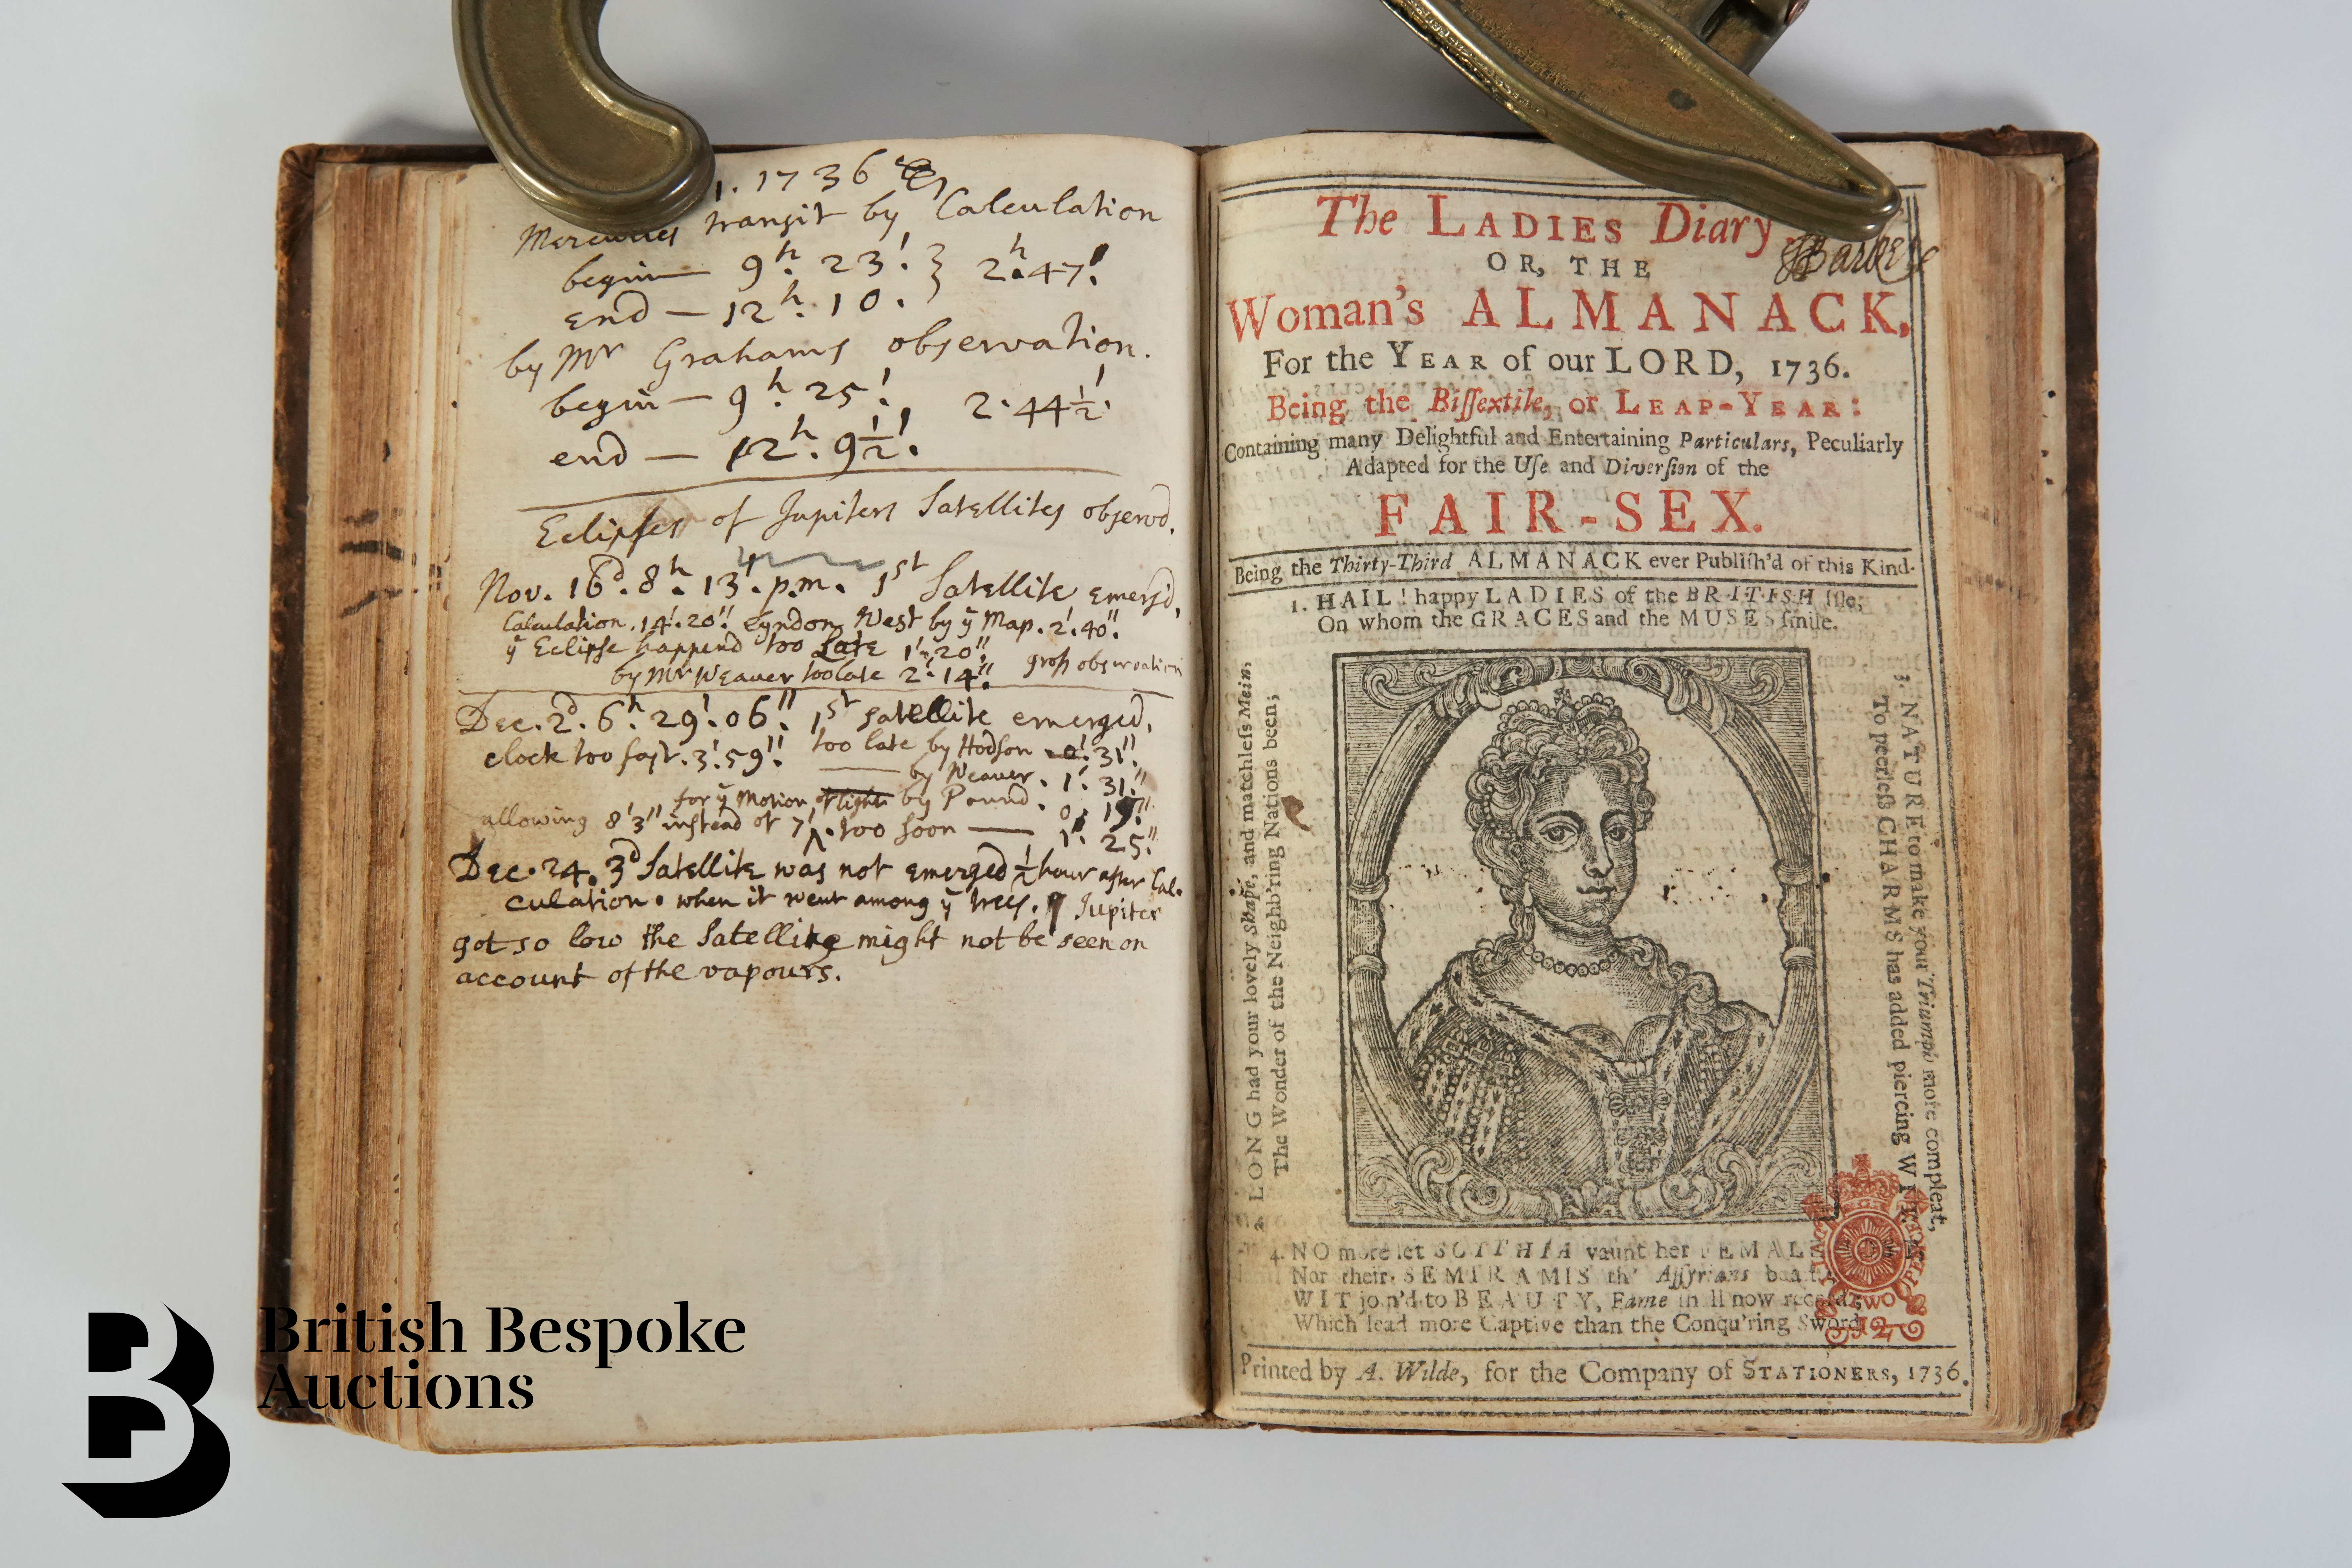 1. 1736
Mercuries transit by Calculation
begin — 9h. 23'. } 2h. 47'.
end — 12h. 10.
by Mr Grahams observation.
begin — 9h 25'. 2. 44 1/2'.
end — 12h. 9 1/2'.
Eclipses of Jupiters Satellites observd.
Nov. 16d. 8h. 13'. p.m. 1st Satellite emergd,
Calculation. 14'. 20''. Lyndon West by ỹ Map. 2'. 40''.
ỹ Eclipse happend too Late 1'. 20''.
by Mr Weaver too late 2'. 14''. gross observation
Dec. 2d. 6h. 29'. 06''. 1st satellite emerged,
clock too fast. 3'. 59''. too late by Hodson 0'. 31''.
—— by Weaver. 1'. 31''.
for ỹ Motion of light by Pound. 0'. 19''.
allowing 8' 3'' instead of 7' . too soon —— 1'. 25''.
Dec. 24. 3d Satellite was not emerged 1/2 hour after Cal-
culation. when it went among ỹ trees. Jupiter
got so low the Satellite might not be seen on
account of the vapours.
The LADIES Diary
Barker
OR, THE
Woman's ALMANACK,
For the YEAR of our LORD, 1736.
Being the Biſſextile, or LEAP-YEAR:
Containing many Delightful and Entertaining Particulars, Peculiarly
Adapted for the Uſe and Diverſion of the
FAIR-SEX.
Being the Thirty-Third ALMANACK ever Publiſh'd of this Kind.
1. HAIL! happy LADIES of the BRITISH Iſle;
On whom the GRACES and the MUSES ſmile.
2. LONG had your lovely Shape, and matchleſs Mein,
The Wonder of the Neighb'ring Nations been;
3. NATURE to make your Triumph more compleat,
To peerleſs CHARMS has added piercing WIT.
4. NO more let SCYTHIA vaunt her FEMAL
Nor their SEMIRAMIS th' Aſſyrians boaſt
WIT join'd to BEAUTY, Fame ſhall now record,
Which lead more Captive than the Conqu'ring Sword.
TWO
PENCE
Printed by A. Wilde, for the Company of STATIONERS, 1736.
B
British Bespoke
Auctions